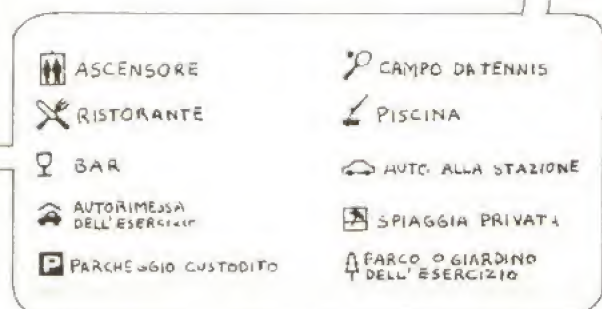 ASCENSORE
RISTORANTE
BAR
AUTORIMESSA
DELL'ESERCIZIO
P PARCHEGGIO CUSTODITO
CAMPO DA TENNIS
PISCINA
AUTO. ALLA STAZIONE
SPIAGGIA PRIVATA
PARCO O GIARDINO
DELL'ESERCIZIO